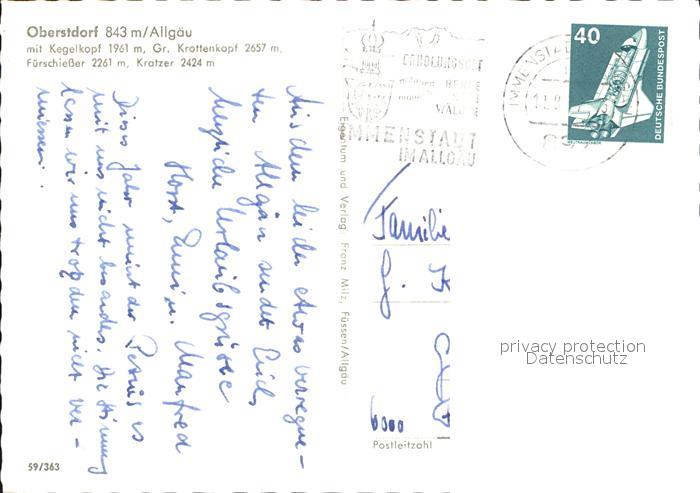 Oberstdorf 843 m/Allgäu
mit Kegelkopf 1961 m, Gr. Krottenkopf 2657 m,
Fürschießer 2261 m, Kratzer 2424 m
Aus dem leider etwas verregne-
ten Allgäu sendet Euch
herzliche Urlaubsgrüße
Horst, u. Manfred
Dieses Jahr meint der Petrus es
mit uns nicht besonders. Die Stimmung
lassen wir uns trotzdem nicht ver-
miesen.
59/363
Eigentum und Verlag Franz Milz, Füssen/Allgäu
ERHOLUNGSORT
BERGE
WÄLDER
IMMENSTADT
IM ALLGÄU
IMMENSTADT
40
DEUTSCHE BUNDESPOST
WELTRAUMLABOR
Familie
6000
Postleitzahl
privacy protection
Datenschutz